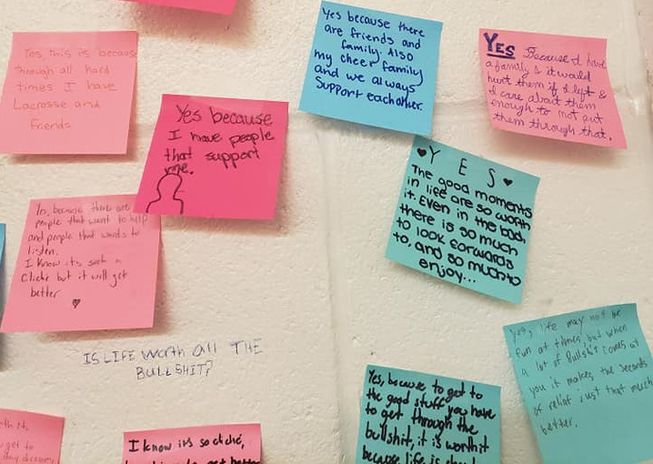 Yes, this is because
through all hard
times I have
Lacrosse and
Friends
Yes because
I have people
that support
me.
Yes because there
are friends and
family. Also
my cheer family
and we always
support eachother.
YES Because I have
a family & it would
hurt them if I left &
I care about them
enough to not put
them through that.
YES
The good moments
in life are so worth
it. Even in the bad,
there is so much
to look forwards
to, and so much to
enjoy...
Yes, because there are
people that want to help
and people that wants to
listen.
I know its such a
cliche but it will get
better
IS LIFE worth all THE
BULLSHIT?
Yes, life may not be
fun at times, but when
a lot of Bullshit comes at
you it makes the seconds
of relief just that much
better.
Yes, because to get to
the good stuff you have
to get through the
bullshit, it is worth it
because life is
I know its so cliché,
get to